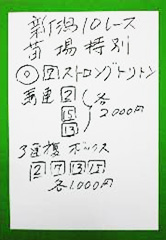 新潟10レース
苗場特別
◎ 7 ストロングトリトン
馬連 2
15 各
13 2000円
3連複 ボックス
2 7 13 15
各1000円